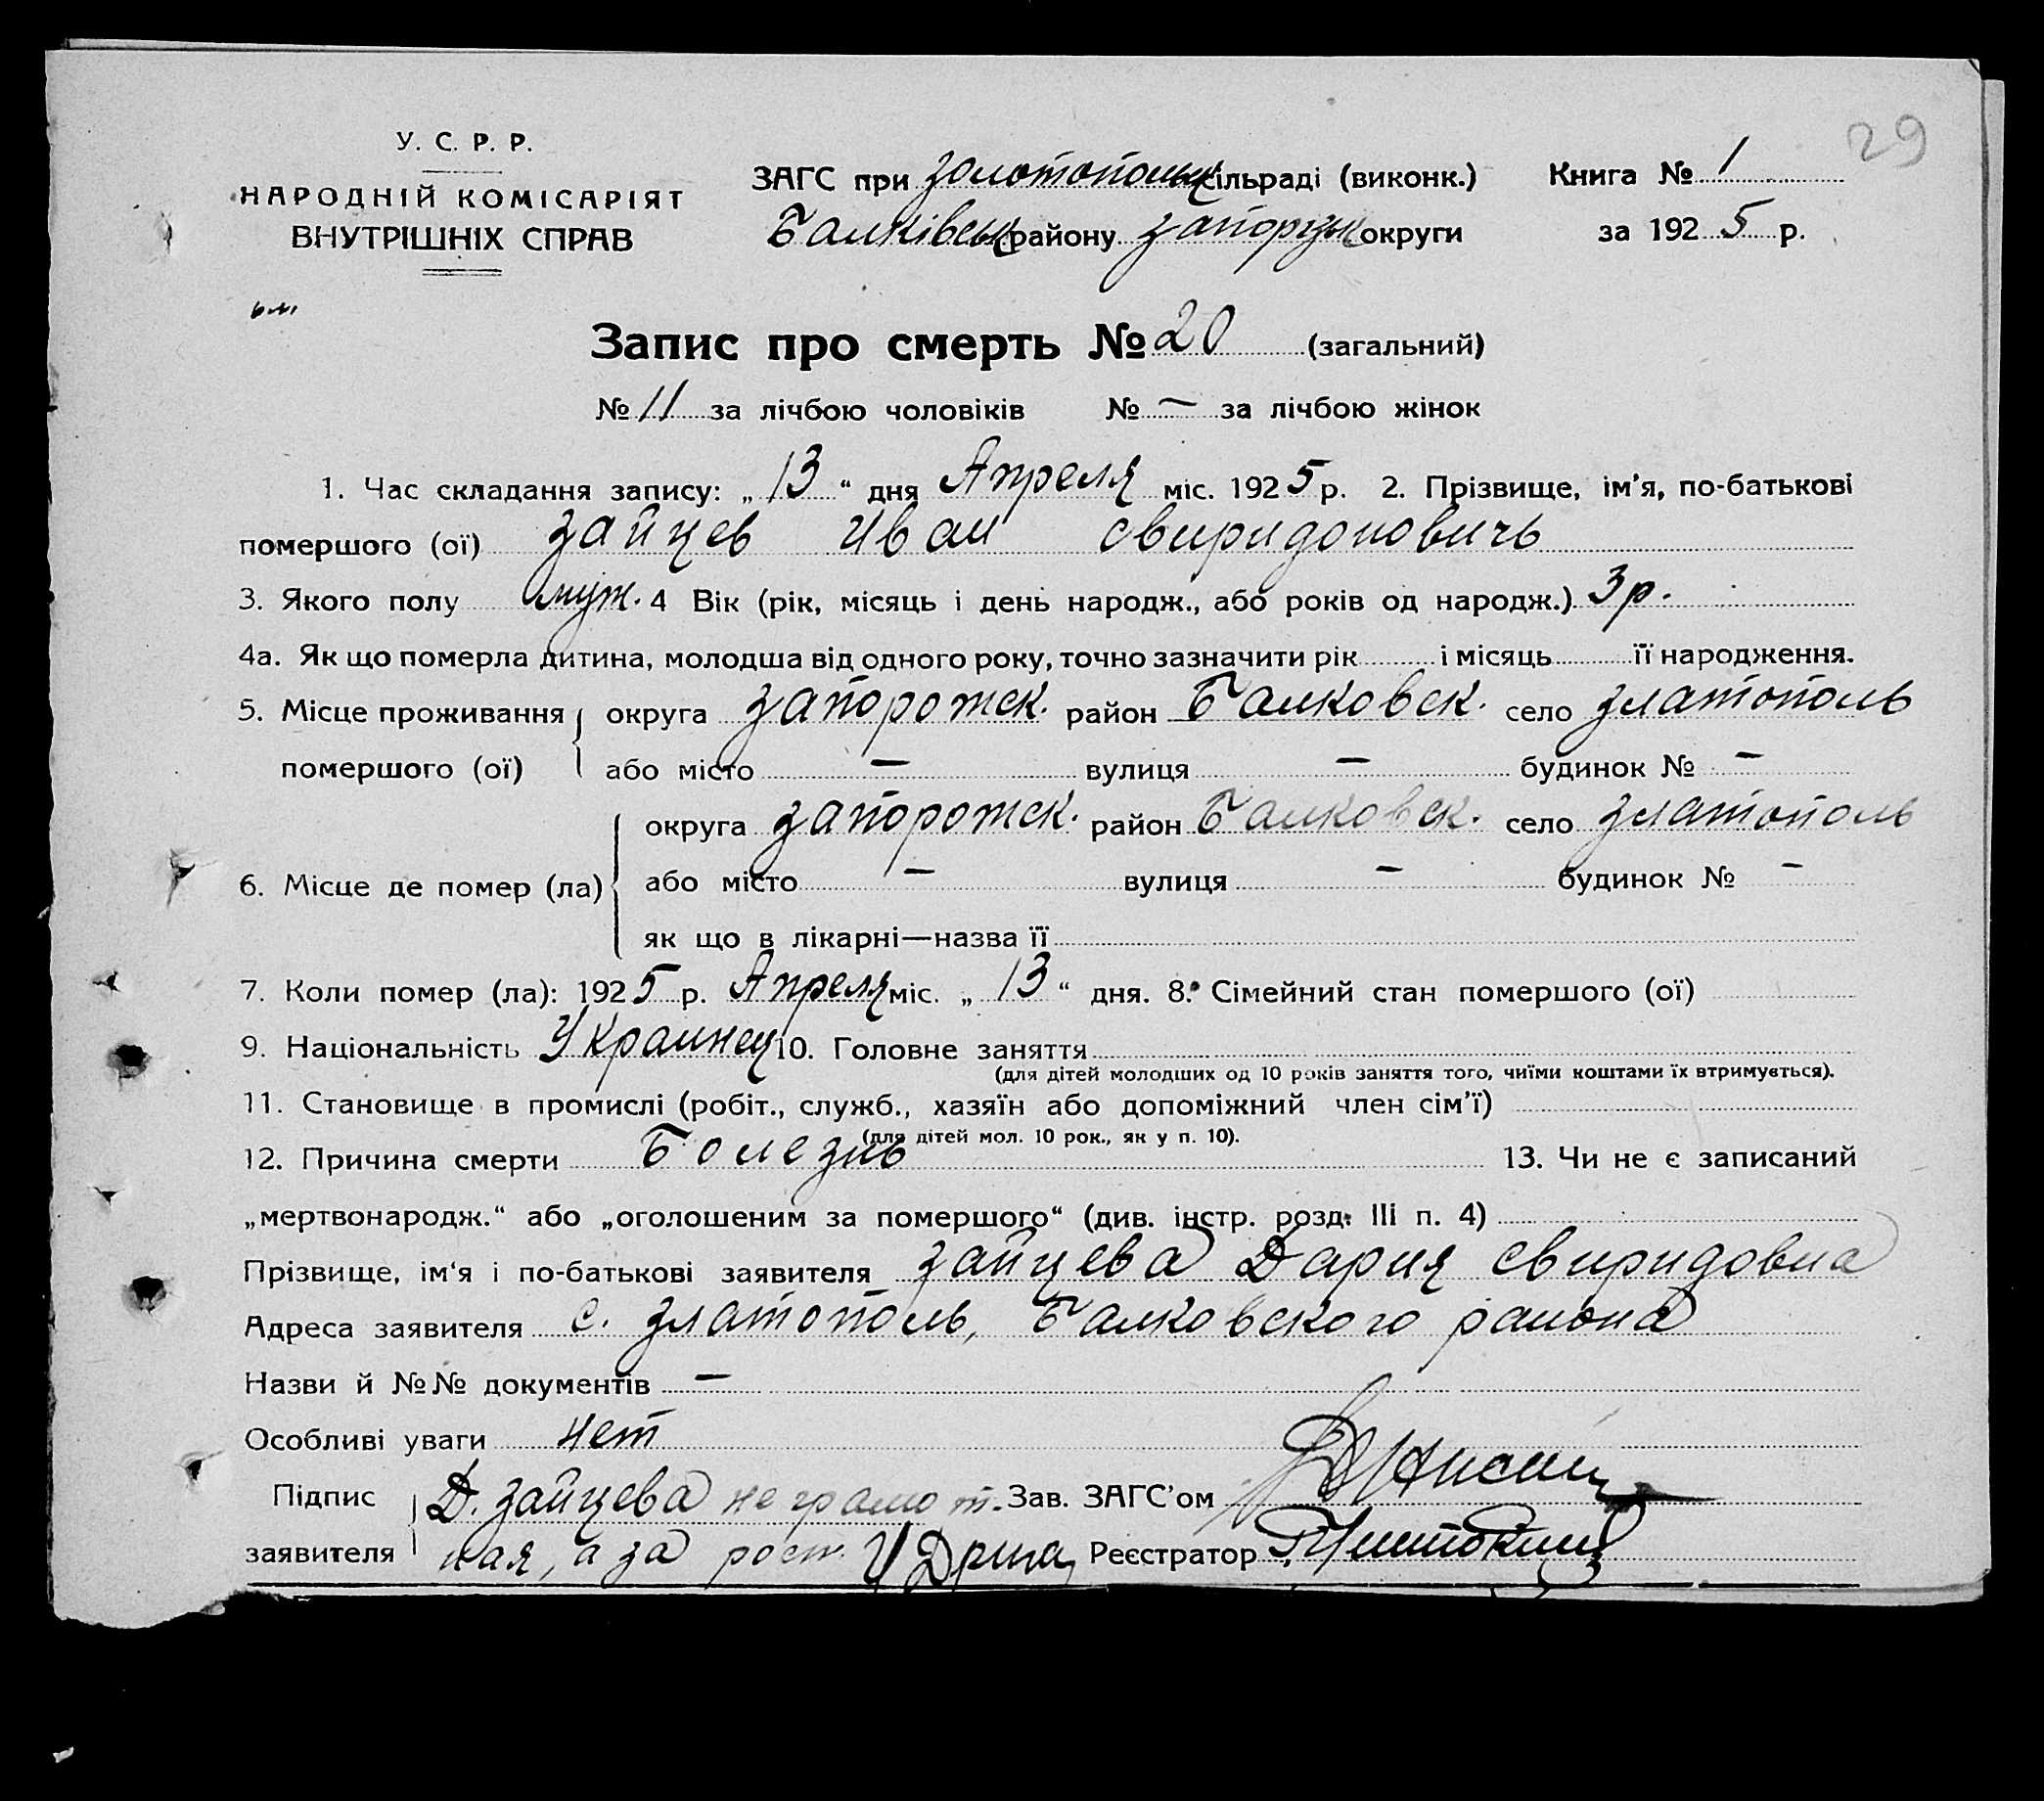 29
У. С. Р. Р.
НАРОДНІЙ КОМІСАРІЯТ
ВНУТРІШНІХ СПРАВ
ЗАГС при Золотопольск сільраді (виконк.) Книга № 1
Балківськ району Запорізьк округи за 1925 р.
Запис про смерть № 20 (загальний)
№ 11 за лічбою чоловіків № — за лічбою жінок
1. Час складання запису: „13“ дня Апреля міс. 1925 р. 2. Прізвище, ім'я, по-батькові
помершого (ої) Зайцев Иван Свиридоновичь
3. Якого полу муж. 4 Вік (рік, місяць і день народж., або років од народж.) 3 р.
4а. Як що померла дитина, молодша від одного року, точно зазначити рік і місяць її народження.
5. Місце проживання округа Запорожск. район Балковск. село Златополь
помершого (ої) або місто — вулиця — будинок № —
округа Запорожск. район Балковск. село Златополь
6. Місце де помер (ла) або місто — вулиця — будинок № —
як що в лікарні—назва її
7. Коли помер (ла): 1925 р. Апреля міс. „13“ дня. 8. Сімейний стан помершого (ої)
9. Національність Украинец 10. Головне заняття
(для дітей молодших од 10 років заняття того, чиїми коштами їх втримується).
11. Становище в промислі (робіт., служб., хазяїн або допоміжний член сім'ї)
(для дітей мол. 10 рок., як у п. 10).
12. Причина смерти Болезнь 13. Чи не є записаний
„мертвонародж.“ або „оголошеним за помершого“ (див. інстр. розд. III п. 4)
Прізвище, ім'я і по-батькові заявителя Зайцева Дария Свиридовна
Адреса заявителя с. Златополь, Балковского района
Назви й №№ документів —
Особливі уваги нет
Підпис Д. Зайцева неграмот- Зав. ЗАГС'ом
заявителя ная, а за Реєстратор